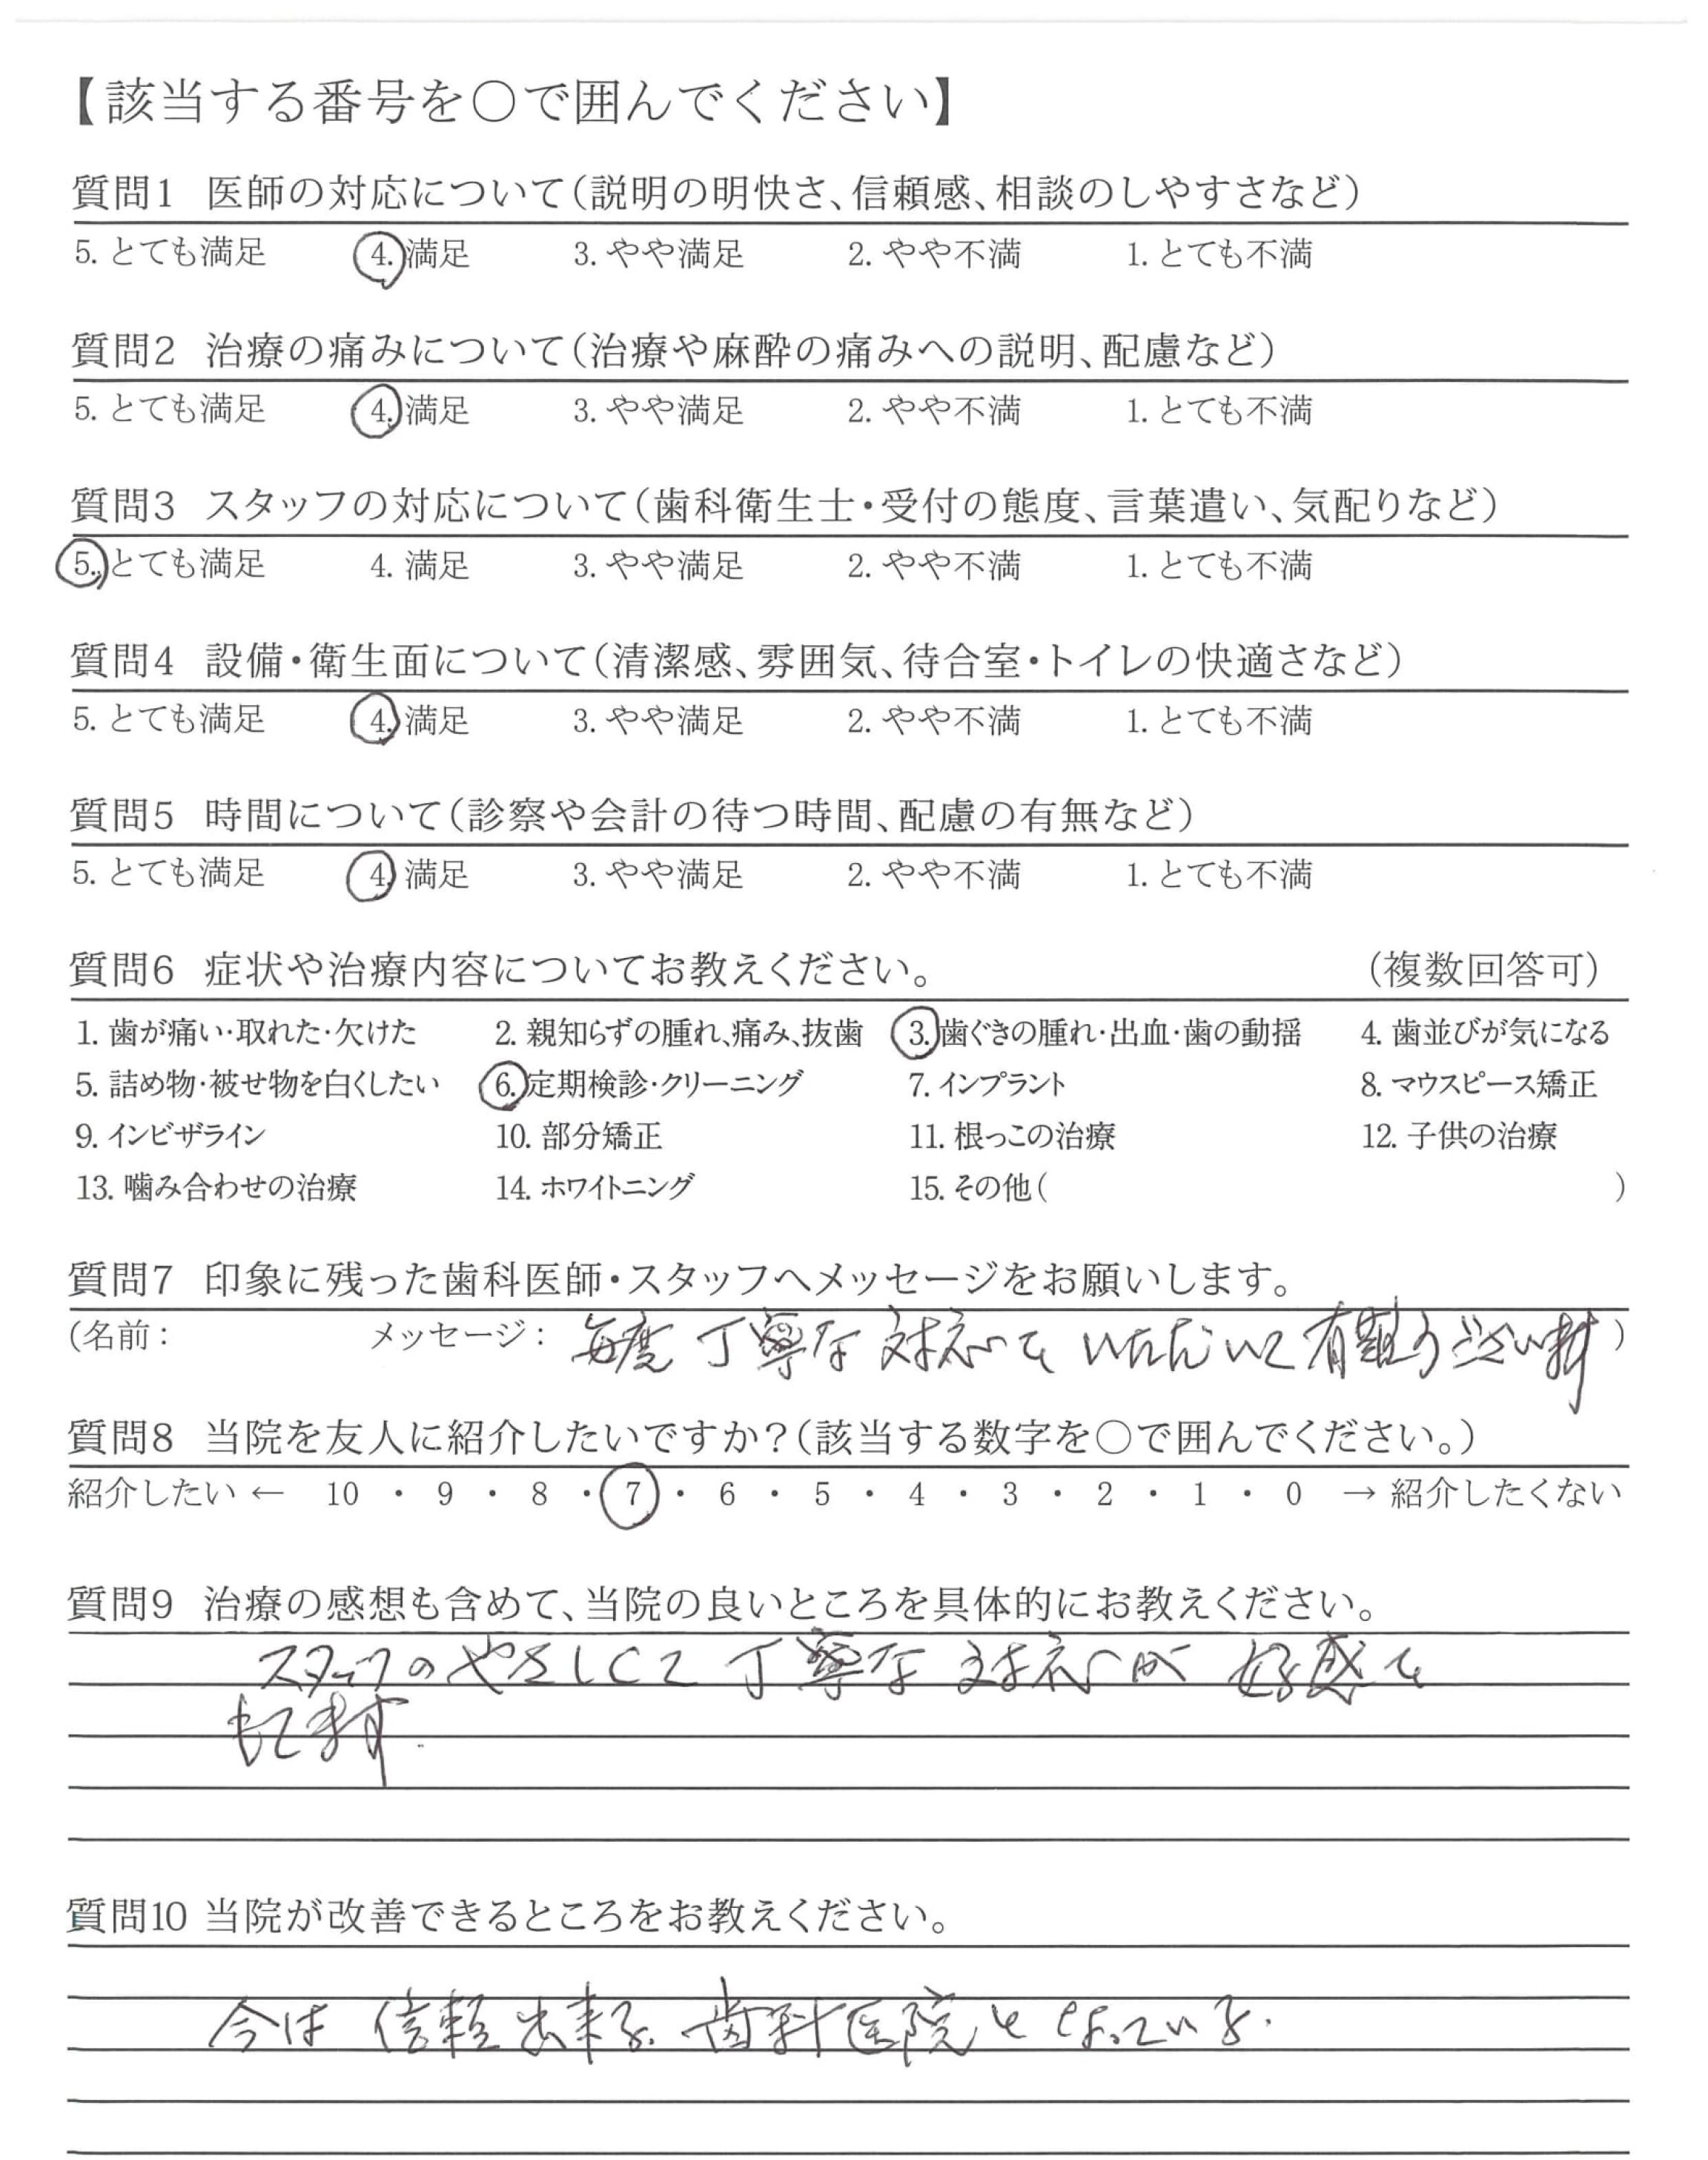 【該当する番号を○で囲んでください】
質問1 医師の対応について(説明の明快さ、信頼感、相談のしやすさなど)
5. とても満足 4. 満足 3. やや満足 2. やや不満 1. とても不満
質問2 治療の痛みについて(治療や麻酔の痛みへの説明、配慮など)
5. とても満足 4. 満足 3. やや満足 2. やや不満 1. とても不満
質問3 スタッフの対応について(歯科衛生士・受付の態度、言葉遣い、気配りなど)
5. とても満足 4. 満足 3. やや満足 2. やや不満 1. とても不満
質問4 設備・衛生面について(清潔感、雰囲気、待合室・トイレの快適さなど)
5. とても満足 4. 満足 3. やや満足 2. やや不満 1. とても不満
質問5 時間について(診察や会計の待つ時間、配慮の有無など)
5. とても満足 4. 満足 3. やや満足 2. やや不満 1. とても不満
質問6 症状や治療内容についてお教えください。 (複数回答可)
1. 歯が痛い・取れた・欠けた 2. 親知らずの腫れ、痛み、抜歯 3. 歯ぐきの腫れ・出血・歯の動揺 4. 歯並びが気になる
5. 詰め物・被せ物を白くしたい 6. 定期検診・クリーニング 7. インプラント 8. マウスピース矯正
9. インビザライン 10. 部分矯正 11. 根っこの治療 12. 子供の治療
13. 噛み合わせの治療 14. ホワイトニング 15. その他( )
質問7 印象に残った歯科医師・スタッフへメッセージをお願いします。
(名前: メッセージ: 毎度 丁寧な 対応を いただいて 有難うございます)
質問8 当院を友人に紹介したいですか?(該当する数字を○で囲んでください。)
紹介したい ← 10 ・ 9 ・ 8 ・ 7 ・ 6 ・ 5 ・ 4 ・ 3 ・ 2 ・ 1 ・ 0 → 紹介したくない
質問9 治療の感想も含めて、当院の良いところを具体的にお教えください。
スタッフの やさしくて 丁寧な 対応が 好感を
もてます.
質問10 当院が改善できるところをお教えください。
今は 信頼出来る 歯科医院と なっている.